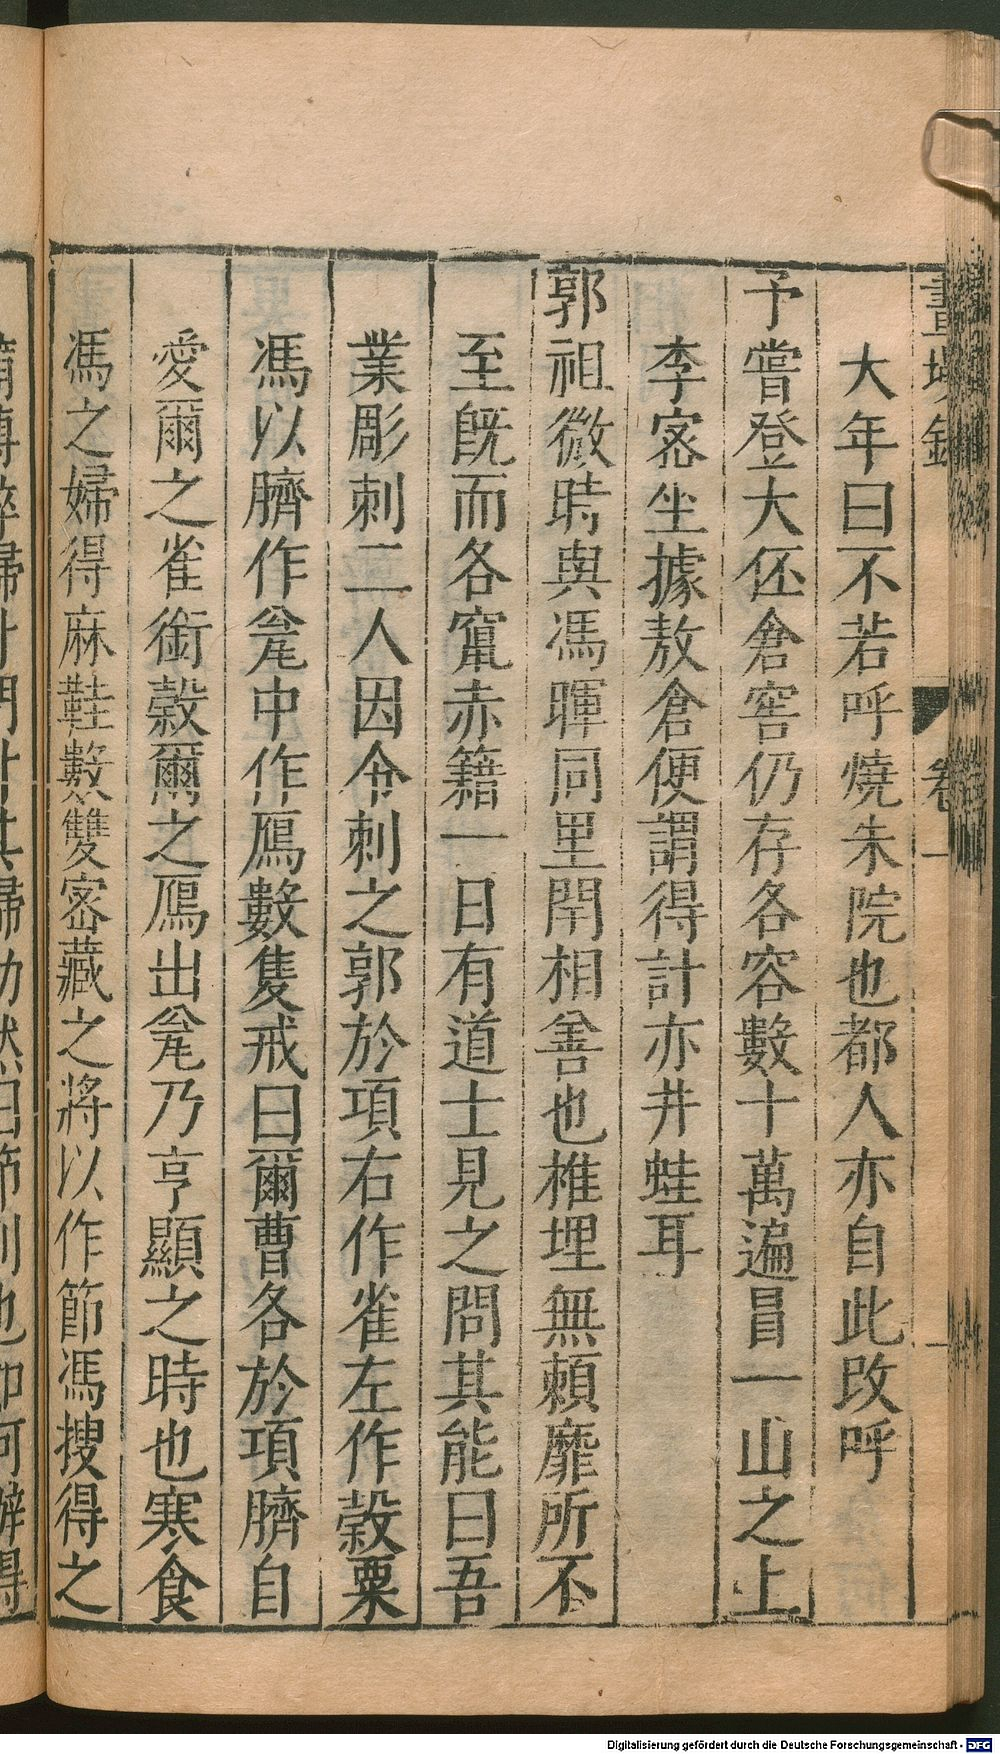 大年曰不若呼燒朱院也都人亦自此改呼
予嘗登大伾倉窖仍存各容數十萬遍冒一山之上
李宻坐據敖倉便謂得計亦井蛙耳
郭祖微時與馮暉同里閈相善也椎埋無賴靡所不
至旣而各竄赤籍一日有道士見之問其能曰吾
業彫刺二人因令刺之郭於項右作雀左作穀粟
馮以臍作瓮中作鴈數隻戒曰爾曹各於項臍自
愛爾之雀銜穀爾之鴈出瓮乃亨顯之時也寒食
馮之婦得麻鞋數雙密藏之將以作節馮搜得之
卷一
一
Digitalisierung gefördert durch die Deutsche Forschungsgemeinschaft - DFG